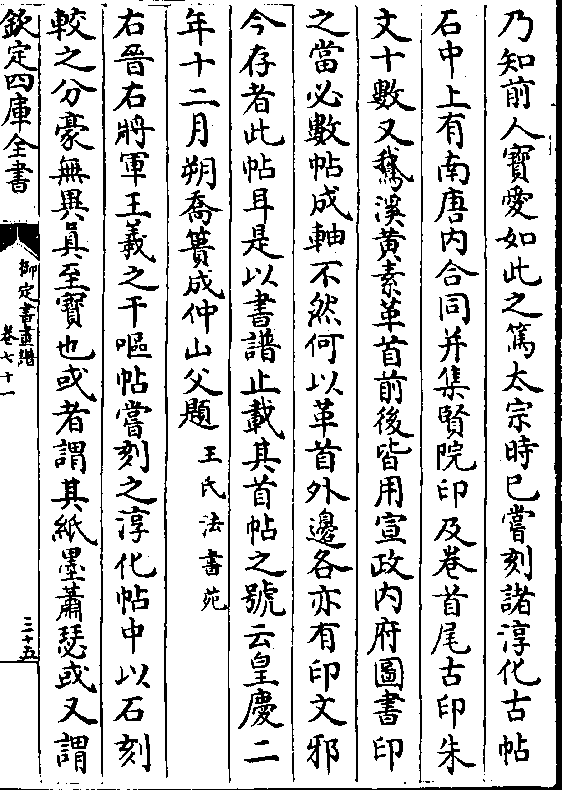 乃知前人寶愛如此之篤太宗時已嘗刻諸淳化古帖
石中上有南唐内合同并集賢院印及卷首尾古印朱
文十數又鵞溪黄素革首前後皆用宣政内府圖書印
之當必數帖成軸不然何以革首外邊各亦有印文邪
今存者此帖耳是以書譜止載其首帖之號云皇慶二
年十二月朔喬簣成仲山父題 王氏法書苑
右晉右將軍王羲之干嘔帖嘗刻之淳化帖中以石刻
較之分豪無異真至寶也或者謂其紙墨蕭瑟或又謂
欽定四庫全書
御定書畫譜
卷七十一
三十五